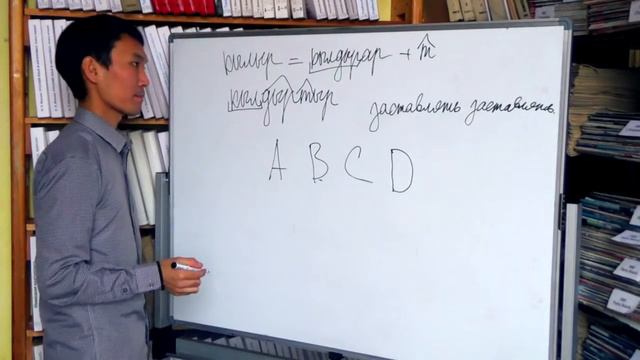 кылыр = кылдырар + т
кылдыртыр заставлять заставлять.
A B C D